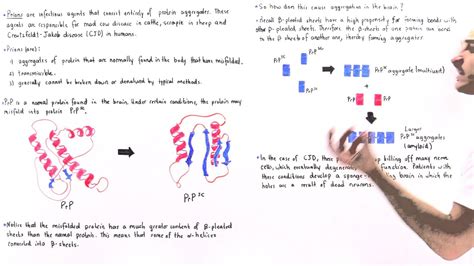 • Prions are infectious agents that consist entirely of protein aggregates. These
agents are responsible for mad cow disease in cattle, scrapie in sheep and
Creutzfeldt-Jakob disease (CJD) in humans.
• Prions (are):
i) aggregates of protein that are normally found in the body that have misfolded.
ii) transmissible.
iii) generally cannot be broken down or denatured by typical methods.
• PrP is a normal protein found in the brain. Under certain conditions, the protein may
misfold into protein PrPSC.
PrP
PrPSC
• Notice that the misfolded protein has a much greater content of β-pleated
sheets than the normal protein. This means that some of the α-helices
converted into β-sheets.
• So how does this cause aggregation in the brain?
• Recall β-pleated sheets have a high propensity for forming bonds with
other β-pleated sheets. Therefore the β-sheets of one protein can bond
to the β sheet of another one, thereby forming aggregates.
PrPSC
PrPSC aggregate (nucleus)
PrP
PrP
Larger
PrPSC aggregates
(amyloid)
• In the case of CJD, these up killing off many nerve
cells, which eventually function. Patients with
these conditions develop a sponge- brain in which the
holes are a result of dead neurons.